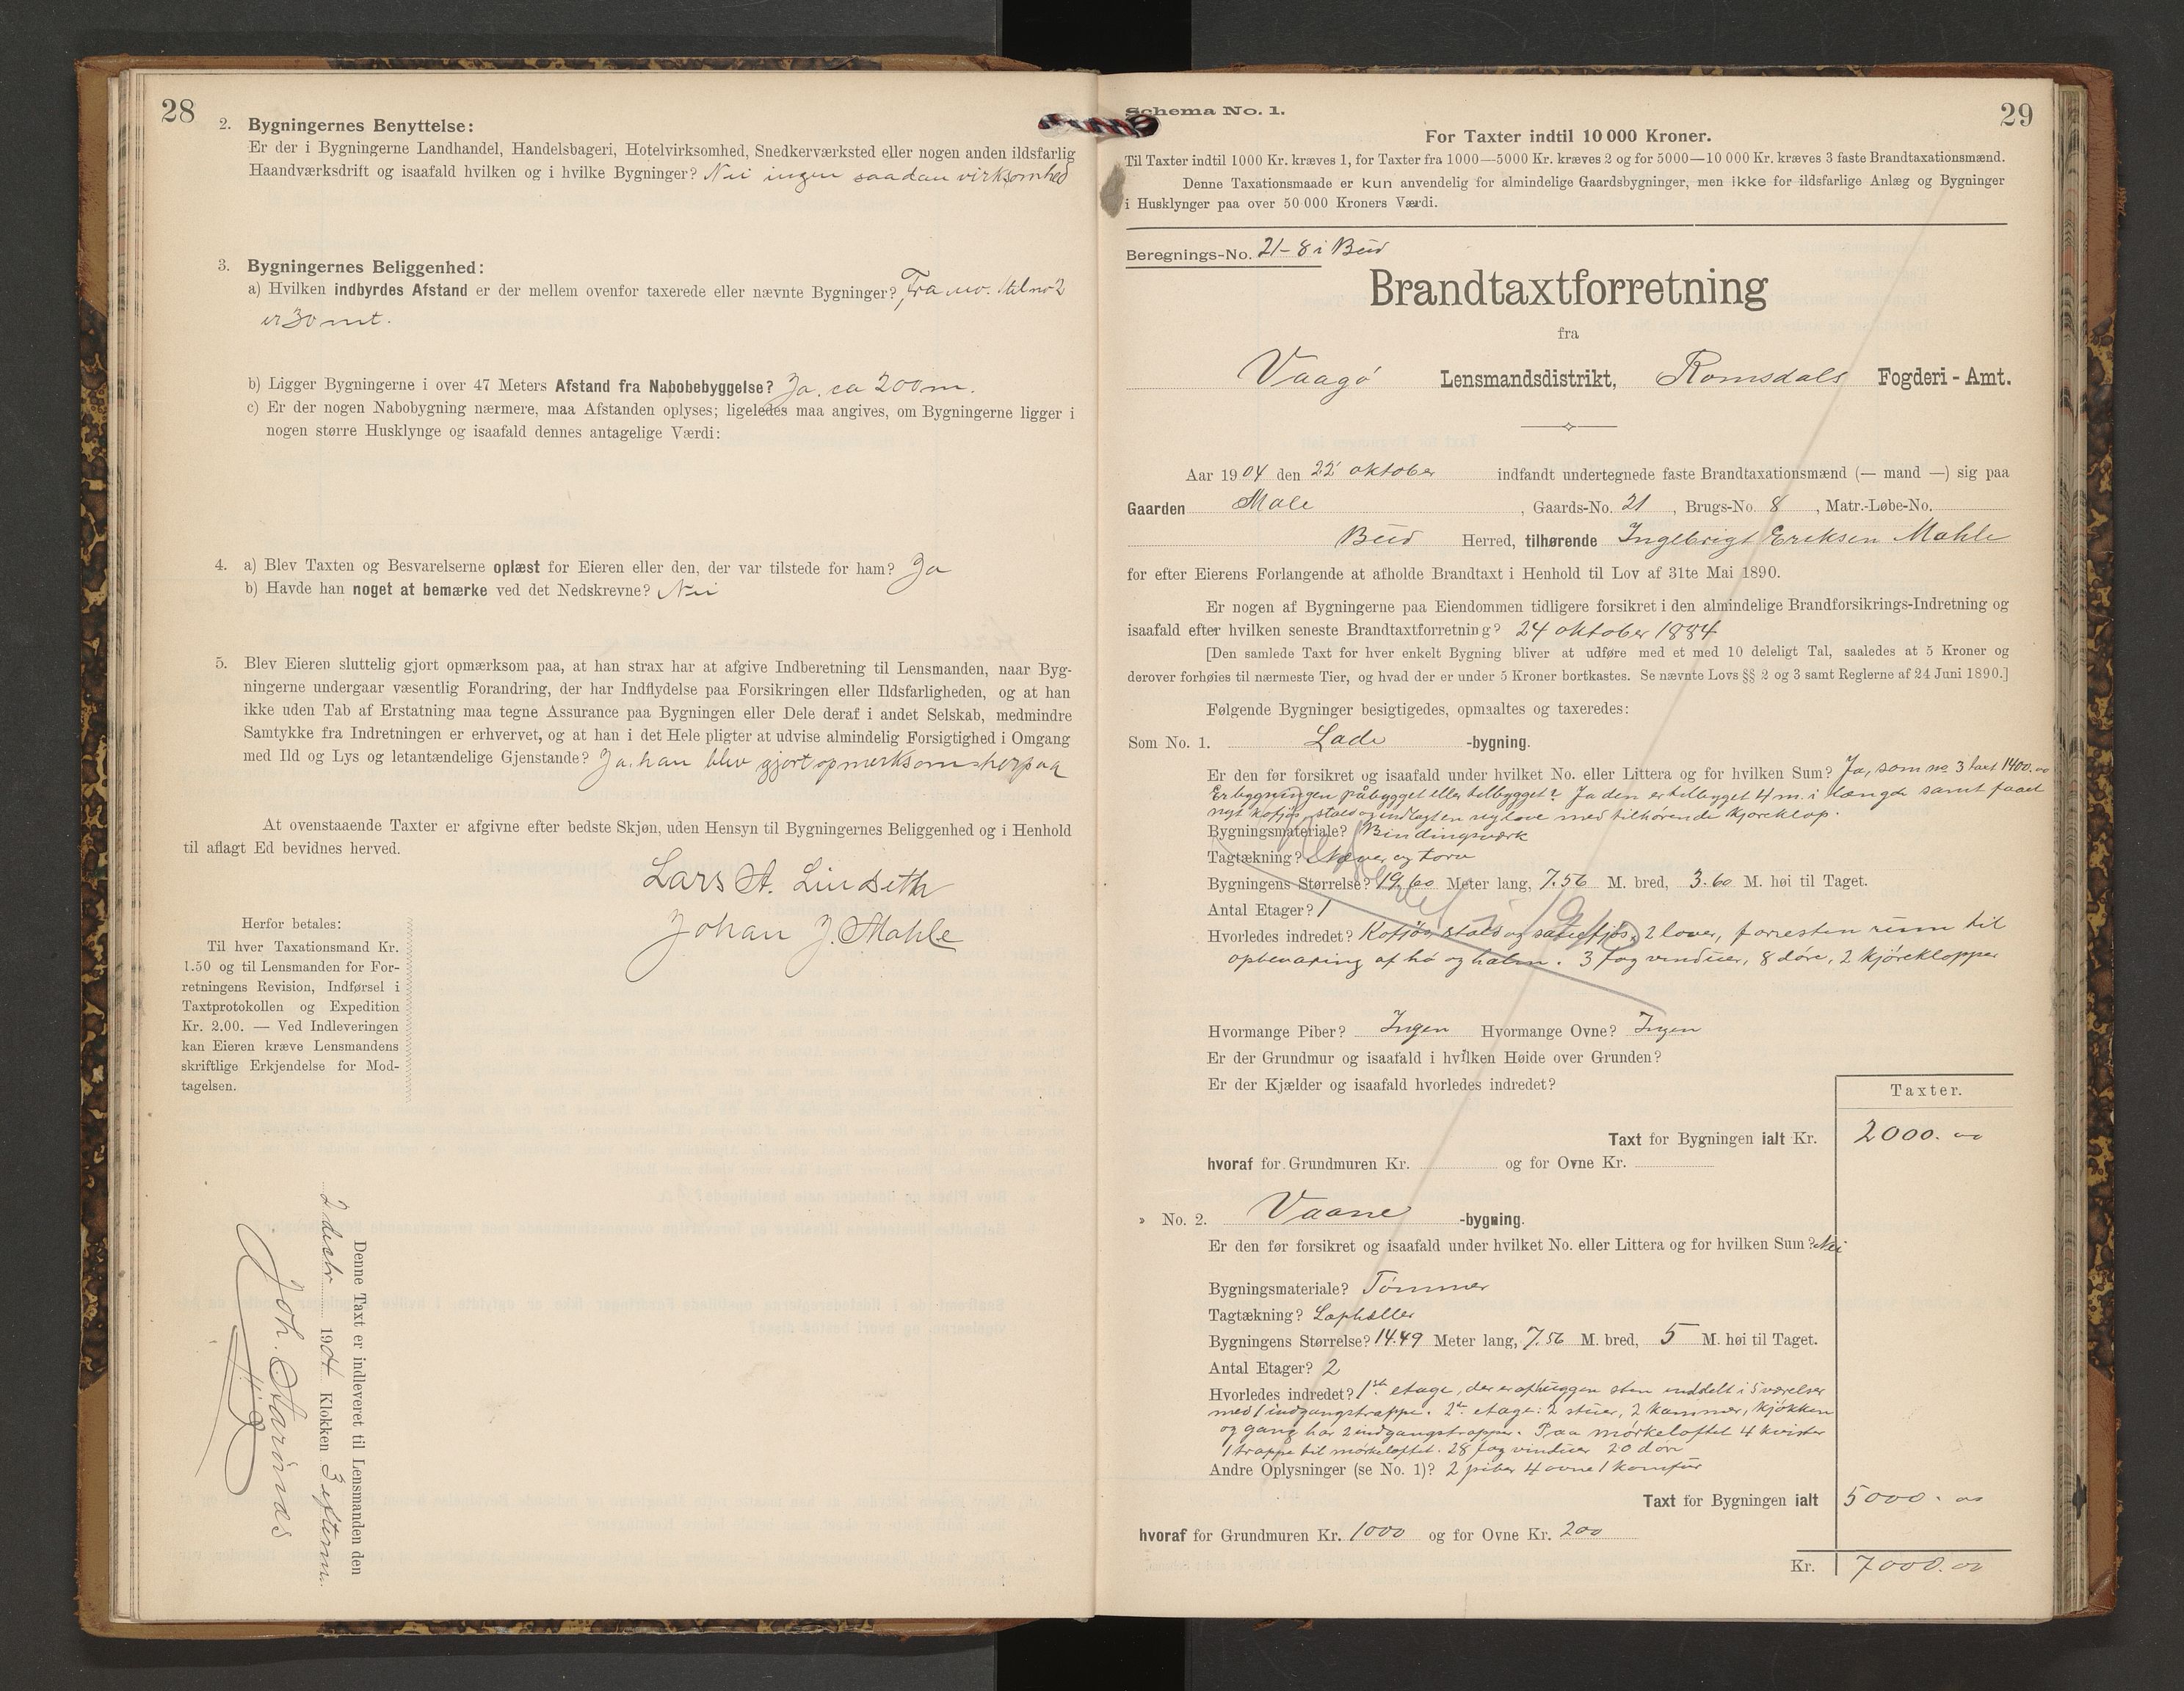 28
2. Bygningernes Benyttelse:
Er der i Bygningerne Landhandel, Handelsbageri, Hotelvirksomhed, Snedkerværksted eller nogen anden ildsfarlig
Haandværksdrift og isaafald hvilken og i hvilke Bygninger? Nei ingen saadan virksomhed
3. Bygningernes Beliggenhed:
a) Hvilken indbyrdes Afstand er der mellem ovenfor taxerede eller nævnte Bygninger? Fra no. 1 til no 2
er 30 mt.
b) Ligger Bygningerne i over 47 Meters Afstand fra Nabobebyggelse? Ja, ca 200 m.
c) Er der nogen Nabobygning nærmere, maa Afstanden oplyses; ligeledes maa angives, om Bygningerne ligger i
nogen større Husklynge og isaafald dennes antagelige Værdi:
4. a) Blev Taxten og Besvarelserne oplæst for Eieren eller den, der var tilstede for ham? Ja
b) Havde han noget at bemærke ved det Nedskrevne? Nei
5. Blev Eieren sluttelig gjort opmærksom paa, at han strax har at afgive Indberetning til Lensmanden, naar Byg-
ningerne undergaar væsentlig Forandring, der har Indflydelse paa Forsikringen eller Ildsfarligheden, og at han
ikke uden Tab af Erstatning maa tegne Assurance paa Bygningen eller Dele deraf i andet Selskab, medmindre
Samtykke fra Indretningen er erhvervet, og at han i det Hele pligter at udvise almindelig Forsigtighed i Omgang
med Ild og Lys og letantændelige Gjenstande? Ja, han blev gjort opmerksom herpaa
At ovenstaaende Taxter er afgivne efter bedste Skjøn, uden Hensyn til Bygningernes Beliggenhed og i Henhold
til aflagt Ed bevidnes herved.
Lars A. Lindseth
Johan J. Mahle
Herfor betales:
Til hver Taxationsmand Kr.
1.50 og til Lensmanden for For-
retningens Revision, Indførsel i
Taxtprotokollen og Expedition
Kr. 2.00. — Ved Indleveringen
kan Eieren kræve Lensmandens
skriftlige Erkjendelse for Mod-
tagelsen.
Denne Taxt er indleveret til Lensmanden den
2 decbr 1904 Klokken 3 efterm.
Joh. Starónas
29
Schema No. 1.
For Taxter indtil 10 000 Kroner.
Til Taxter indtil 1000 Kr. kræves 1, for Taxter fra 1000—5000 Kr. kræves 2 og for 5000—10 000 Kr. kræves 3 faste Brandtaxationsmænd.
Denne Taxationsmaade er kun anvendelig for almindelige Gaardsbygninger, men ikke for ildsfarlige Anlæg og Bygninger
i Husklynger paa over 50 000 Kroners Værdi.
Beregnings-No. 21-8 i Bud
Brandtaxtforretning
fra
Vaagø Lensmandsdistrikt, Romsdals Fogderi - Amt.
Aar 1904 den 22 oktober indfandt undertegnede faste Brandtaxationsmænd (— mand —) sig paa
Gaarden Male, Gaards-No. 21, Brugs-No. 8, Matr.-Løbe-No.
Bud Herred, tilhørende Ingebrigt Eriksen Mahle
for efter Eierens Forlangende at afholde Brandtaxt i Henhold til Lov af 31te Mai 1890.
Er nogen af Bygningerne paa Eiendommen tidligere forsikret i den almindelige Brandforsikrings-Indretning og
isaafald efter hvilken seneste Brandtaxtforretning? 24 oktober 1884
[Den samlede Taxt for hver enkelt Bygning bliver at udføre med et med 10 deleligt Tal, saaledes at 5 Kroner og
derover forhøies til nærmeste Tier, og hvad der er under 5 Kroner bortkastes. Se nævnte Lovs §§ 2 og 3 samt Reglerne af 24 Juni 1890.]
Følgende Bygninger besigtigedes, opmaaltes og taxeredes:
Som No. 1. Lade -bygning.
Er den før forsikret og isaafald under hvilket No. eller Littera og for hvilken Sum? Ja, som no 3 taxt 1400.00
Er bygningen påbygget eller tilbygget? Ja den er tilbygget 4 m. i længde samt faaet
nyt kofjøs, stald og indlagt en ny love med tilhørende kjøreklop.
Bygningsmateriale? Bindingsværk
Tagtækning? Næver og torv
Bygningens Størrelse? 19,60 Meter lang, 7.56 M. bred, 3.60 M. høi til Taget.
Antal Etager? 1
Hvorledes indredet? Kofjøs, stald og sauefjøs, 2 lover, forresten rum til
opbevaring af hø og halm. 3 fag vinduer, 8 døre, 2 kjøreklopper
Hvormange Piber? Ingen Hvormange Ovne? Ingen
Er der Grundmur og isaafald i hvilken Høide over Grunden?
Er der Kjælder og isaafald hvorledes indredet?
Taxter.
Taxt for Bygningen ialt Kr. 2000.00
hvoraf for Grundmuren Kr. og for Ovne Kr.
» No. 2. Vaane -bygning.
Er den før forsikret og isaafald under hvilket No. eller Littera og for hvilken Sum? Nei
Bygningsmateriale? Tømmer
Tagtækning? Laphæller
Bygningens Størrelse? 14.49 Meter lang, 7.56 M. bred, 5 M. høi til Taget.
Antal Etager? 2
Hvorledes indredet? 1ste etage, der er af huggen sten inddelt i 5 værelser
med 1 indgangstrappe. 2den etage: 2 stuer, 2 kammer, kjøkken
og gang har 2 indgangstrapper. Paa mørkeloftet 4 kvister
1 trappe til mørkeloftet. 28 fag vinduer 20 døre
Andre Oplysninger (se No. 1)? 2 piber 4 ovne 1 komfur
Taxt for Bygningen ialt 5000.00
hvoraf for Grundmuren Kr. 1000 og for Ovne Kr. 200
Kr. 7000.00